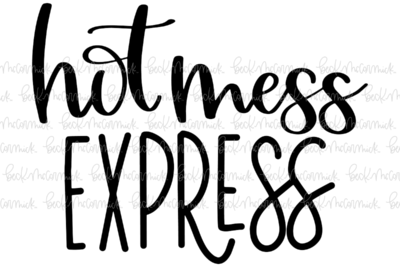 hot mess
EXPRESS